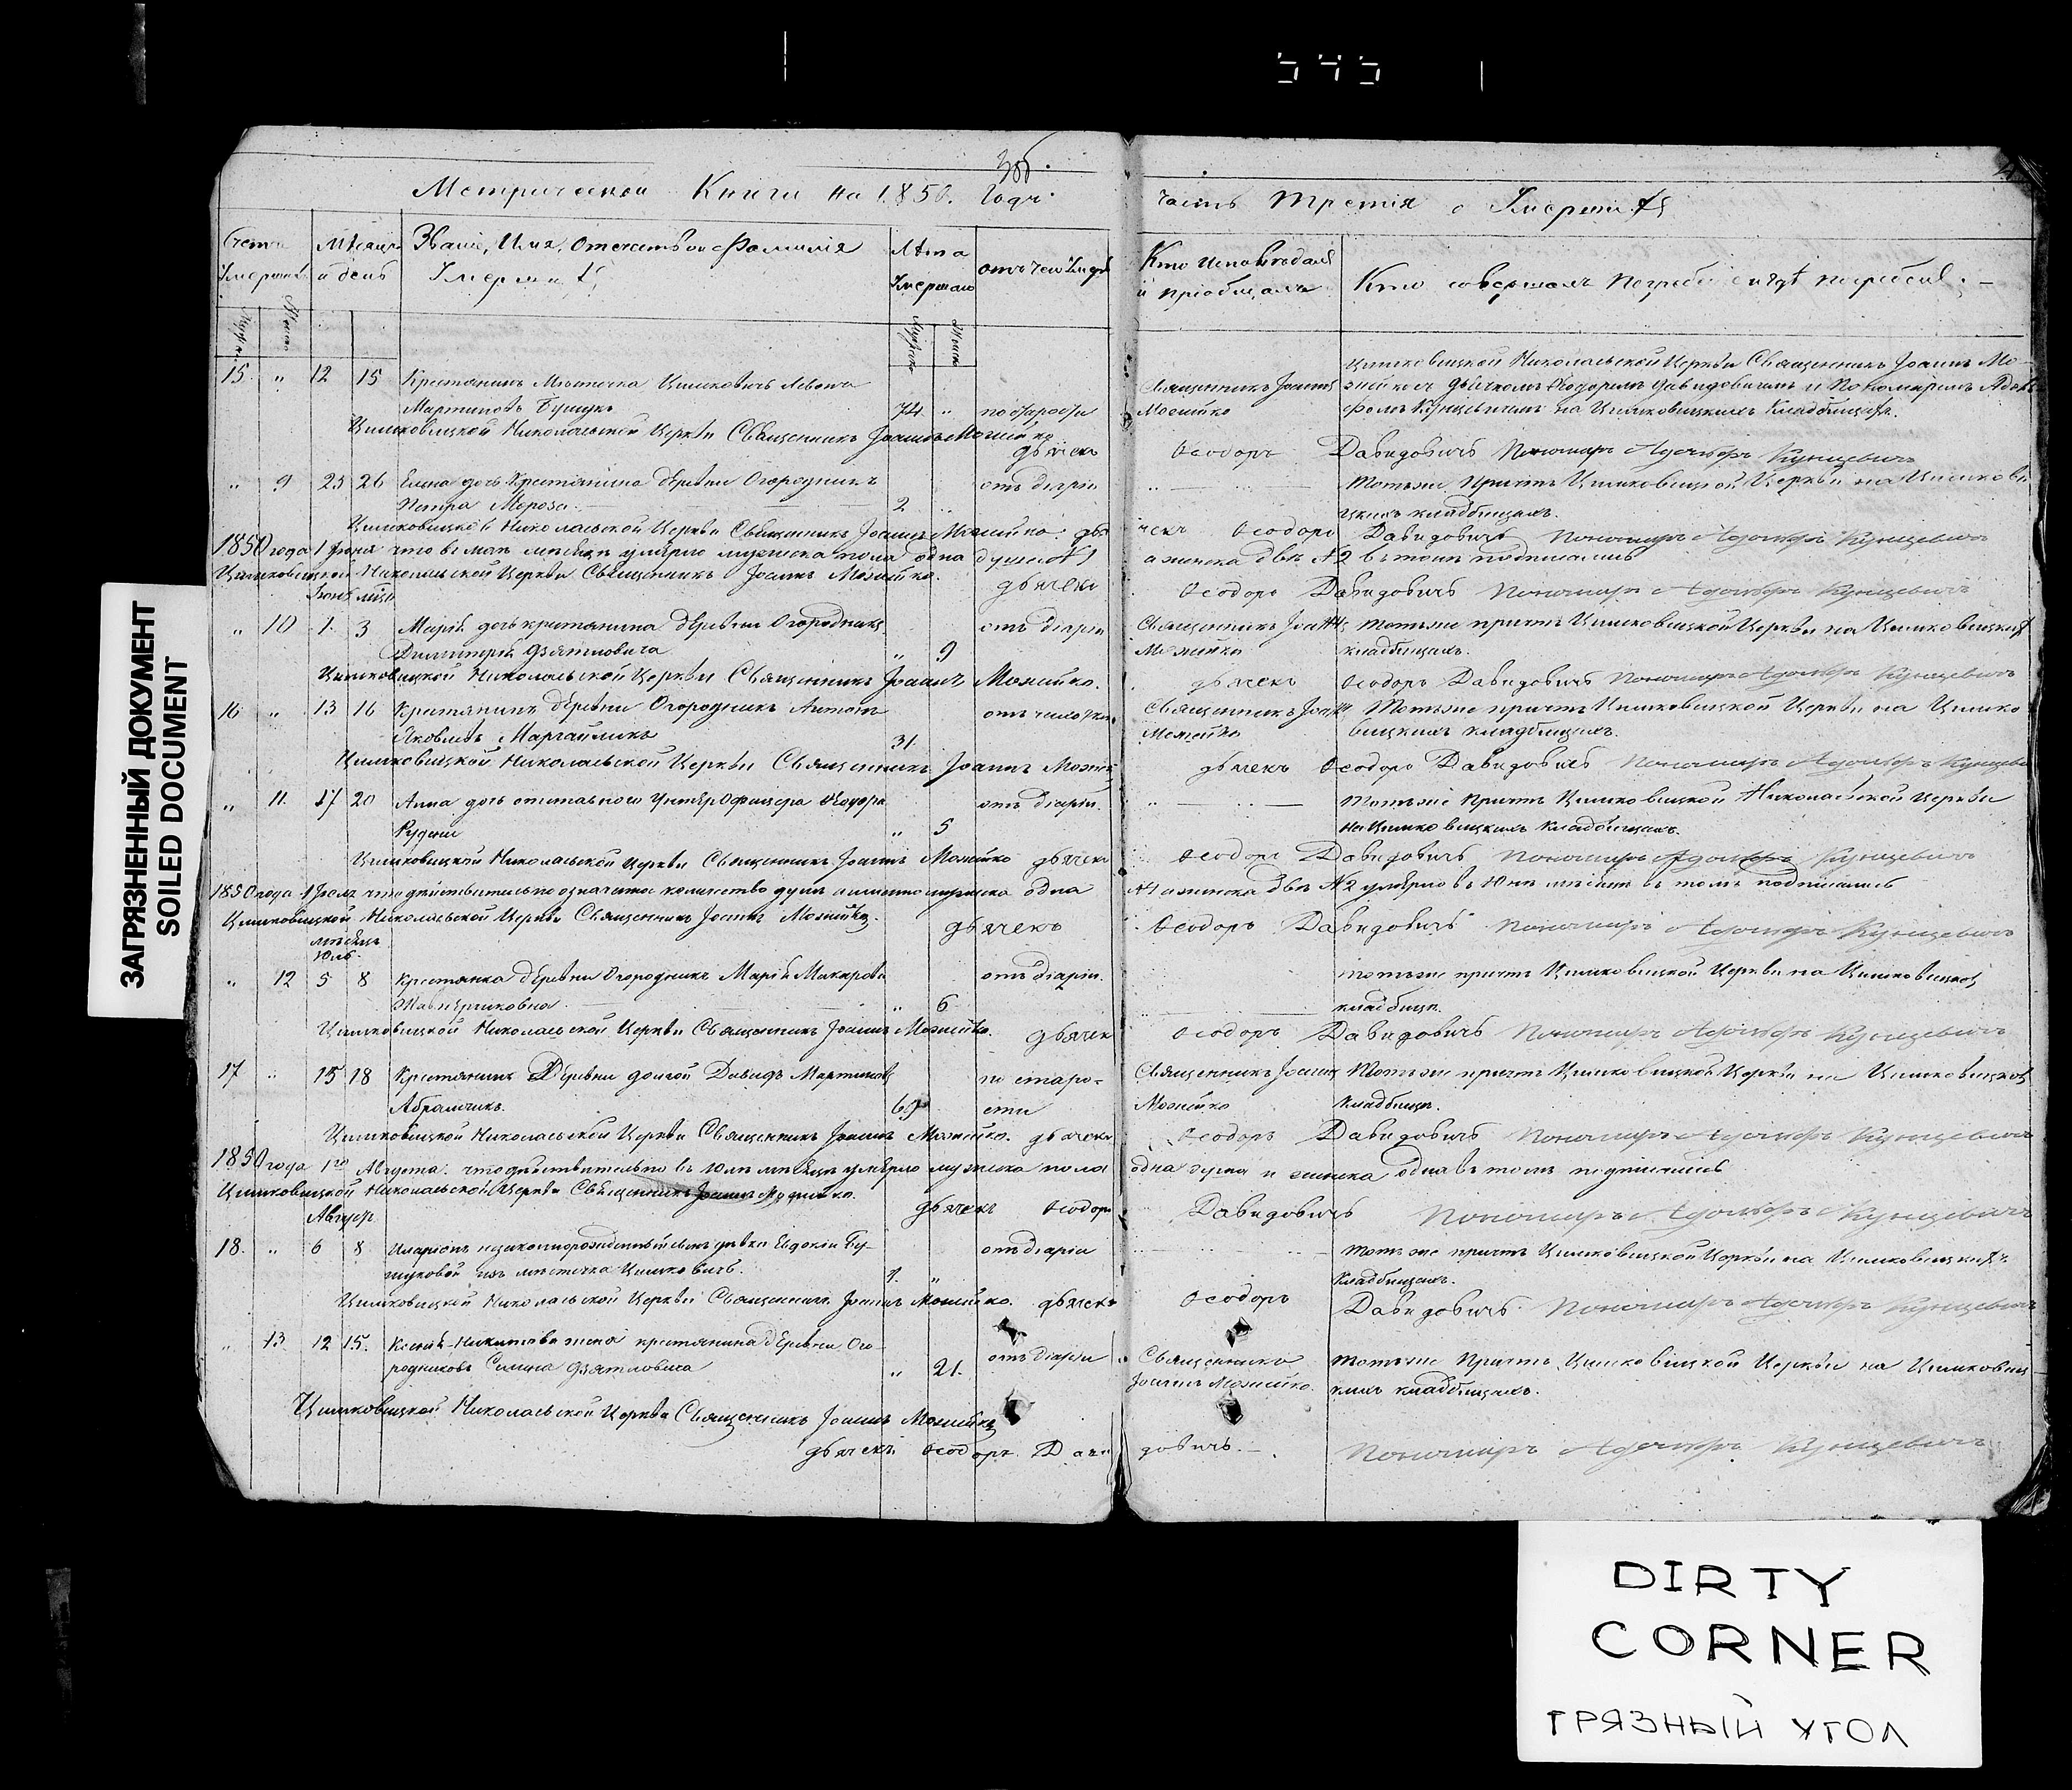 545
ЗАГРЯЗНЕННЫЙ ДОКУМЕНТ
SOILED DOCUMENT
Метрической Книги на 1850. Годъ.
часть третія о Умерши
Счетъ Умерши
Мѣсяцъ и день
Званіе, Имя, Отечество и Фамилія
Лѣта Умершаго
отъ чего
Кто исповѣдалъ и пріобщалъ
Кто совершалъ погребе и гдѣ погребен
15. „ 12 15 Крестьянинъ Мѣстечка Цимковичъ
Мартиновъ 74 „
Священникъ Іоаннъ Можейко
Цимковицкой Николаевской Церкви Священникъ Іоаннъ Мо-
на Цимковицкихъ Кладбищахъ.
Цимковицкой Николаевской Церкви Священникъ Іоаннъ Можейко
дьячекъ Ѳеодоръ Давидовичъ Пономарь Адольфъ Кунцевичъ
„ 9 25 26 Елена дочь Крестьянина деревни Огородникъ
Петра Мороза 2 отъ діаріи
Тотъже Причтъ Цимковицкой Церкви на Цимкови
цкихъ кладбищахъ.
Цимковицкой Николаевской Церкви Священникъ Іоаннъ Можейко. дья
чекъ Ѳеодоръ Давидовичъ Пономарь Адольфъ Кунцевичъ
1850 года 1 Іюня что въ маѣ мѣсяцѣ умерло мужеска пола одна душа №1
а женска двѣ №2 въ томъ подписались
Цимковицкой Николаевской Церкви Священникъ Іоаннъ Можейко.
дьячекъ Ѳеодоръ Давидовичъ Пономарь Адольфъ Кунцевичъ
„ 10 1. 3 Марія дочь крестьянина деревни Огородникъ
Дмитрія Дзятловича „ 9 отъ діаріи
Священникъ Іоаннъ Можейко
тотъже причтъ Цимковицкой Церкви на Цимковицкихъ
кладбищахъ.
Цимковицкой Николаевской Церкви Священникъ Іоаннъ Можейко.
дьячекъ Ѳеодоръ Давидовичъ Пономарь Адольфъ Кунцевичъ
16 „ 13 16 Крестьянинъ деревни Огородникъ Антонъ
Яковлевъ 31.
Священникъ Іоаннъ Можейко
Тотъже причтъ Цимковицкой Церкви на Цимко
вицкихъ кладбищахъ.
Цимковицкой Николаевской Церкви Священникъ Іоаннъ Можей
дьячекъ Ѳеодоръ Давидовичъ Пономарь Адольфъ Кунцеви
„ 11. 17 20 Анна дочь отставнаго Унтеръ Офицера Ѳеодора
„ 5 отъ діаріи.
Тотъже Причтъ Цимковицкой Николаевской Церкви
на Цимковицкихъ Кладбищахъ.
Цимковицкой Николаевской Церкви Священникъ Іоаннъ Можейко дьячекъ
Ѳеодоръ Давидовичъ Пономарь Адольфъ Кунцевичъ
1850 года 1 Іюля что дѣйствительно означенное количество душъ а именно мужеска одна
№1 а женска двѣ №2 умерло въ Юнѣ мѣсяцѣ въ томъ подписались
Цимковицкой Николаевской Церкви Священникъ Іоаннъ Можейко.
дьячекъ Ѳеодоръ Давидовичъ Пономарь Адольфъ Кунцевичъ
мѣсяцъ Юль.
„ 12 5 8 Крестьянка деревни Огородникъ Марія Макарова
„ 6 отъ діаріи.
тотъже причтъ Цимковицкой Церкви на Цимковицкой
кладбищѣ.
Цимковицкой Николаевской Церкви Священникъ Іоаннъ Можейко.
дьячекъ Ѳеодоръ Давидовичъ Пономарь Адольфъ Кунцевичъ
17 „ 15 18 Крестьянинъ Деревни Долгой Давидъ Мартиновъ
Абрамчикъ. 69 по старо-
сти
Священникъ Іоаннъ Можейко
Тотъже причтъ Цимковицкой Церкви на Цимковицкой
кладбищѣ.
Цимковицкой Николаевской Церкви Священникъ Іоаннъ Можейко. дьячекъ
Ѳеодоръ Давидовичъ Пономарь Адольфъ Кунцевичъ
1850 года 1го Августа. что дѣйствительно въ Юлѣ мѣсяцѣ умерло мужеска пола
одна душа и женска одна въ томъ подписались
Цимковицкой Николаевской Церкви Священникъ Іоаннъ Можейко.
дьячекъ Ѳеодоръ Давидовичъ Пономарь Адольфъ Кунцевичъ
Август
18. „ 6 8 Иларіонъ незаконнорожденный сынъ дѣвки Евдокіи Бу-
шуковой изъ мѣстечка Цимковичъ. „ отъ діаріи
тотъже причтъ Цимковицкой Церкви на Цимковицкихъ
Кладбищахъ.
Цимковицкой Николаевской Церкви Священникъ Іоаннъ Можейко. дьячекъ
Ѳеодоръ Давидовичъ Пономарь Адольфъ Кунцевичъ
„ 13 12 15. Ксенія Никитова жена крестьянина деревни Ого-
родниковъ Семена Дзятловича „ 21. отъ діаріи
Священникъ Іоаннъ Можейко.
тотъже Причтъ Цимковицкой Церкви на Цимковиц-
кихъ кладбищахъ.
Цимковицкой Николаевской Церкви Священникъ Іоаннъ Можейко
дьячекъ Ѳеодоръ Дави довичъ. Пономарь Адольфъ Кунцевичъ
DIRTY
CORNER
ГРЯЗНЫЙ УГОЛ